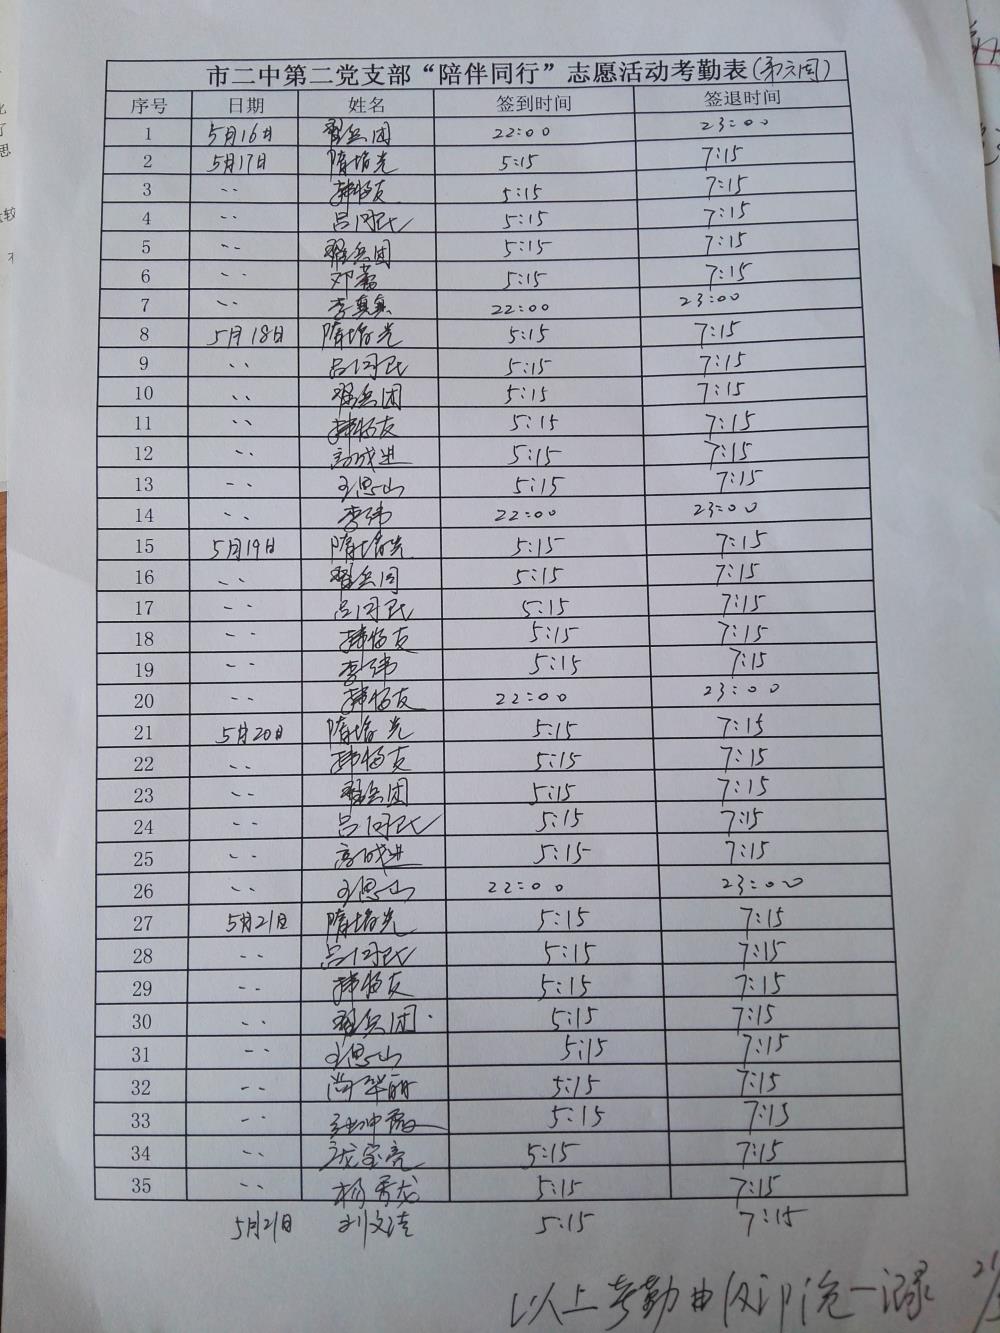 市二中第二党支部“陪伴同行”志愿活动考勤表(第六周)
序号 日期 姓名 签到时间 签退时间
1 5月16日 翟兵团 22:00 23:00
2 5月17日 隋培光 5:15 7:15
3 〃 韩怡友 5:15 7:15
4 〃 吕同民 5:15 7:15
5 〃 翟兵团 5:15 7:15
6 〃 邓蕾 5:15 7:15
7 〃 李真真 22:00 23:00
8 5月18日 隋培光 5:15 7:15
9 〃 吕同民 5:15 7:15
10 〃 翟兵团 5:15 7:15
11 〃 韩怡友 5:15 7:15
12 〃 高成进 5:15 7:15
13 〃 王思山 5:15 7:15
14 〃 李伟 22:00 23:00
15 5月19日 隋培光 5:15 7:15
16 〃 翟兵团 5:15 7:15
17 〃 吕同民 5:15 7:15
18 〃 韩怡友 5:15 7:15
19 〃 李伟 5:15 7:15
20 〃 韩怡友 22:00 23:00
21 5月20日 隋培光 5:15 7:15
22 〃 韩怡友 5:15 7:15
23 〃 翟兵团 5:15 7:15
24 〃 吕同民 5:15 7:15
25 〃 高成进 5:15 7:15
26 〃 王思山 22:00 23:00
27 5月21日 隋培光 5:15 7:15
28 〃 吕同民 5:15 7:15
29 〃 韩怡友 5:15 7:15
30 〃 翟兵团 5:15 7:15
31 〃 王思山 5:15 7:15
32 〃 尚华丽 5:15 7:15
33 〃 5:15 7:15
34 〃 宝亮 5:15 7:15
35 〃 杨秀龙 5:15 7:15
5月21日 刘文洁 5:15 7:15
以上考勤由